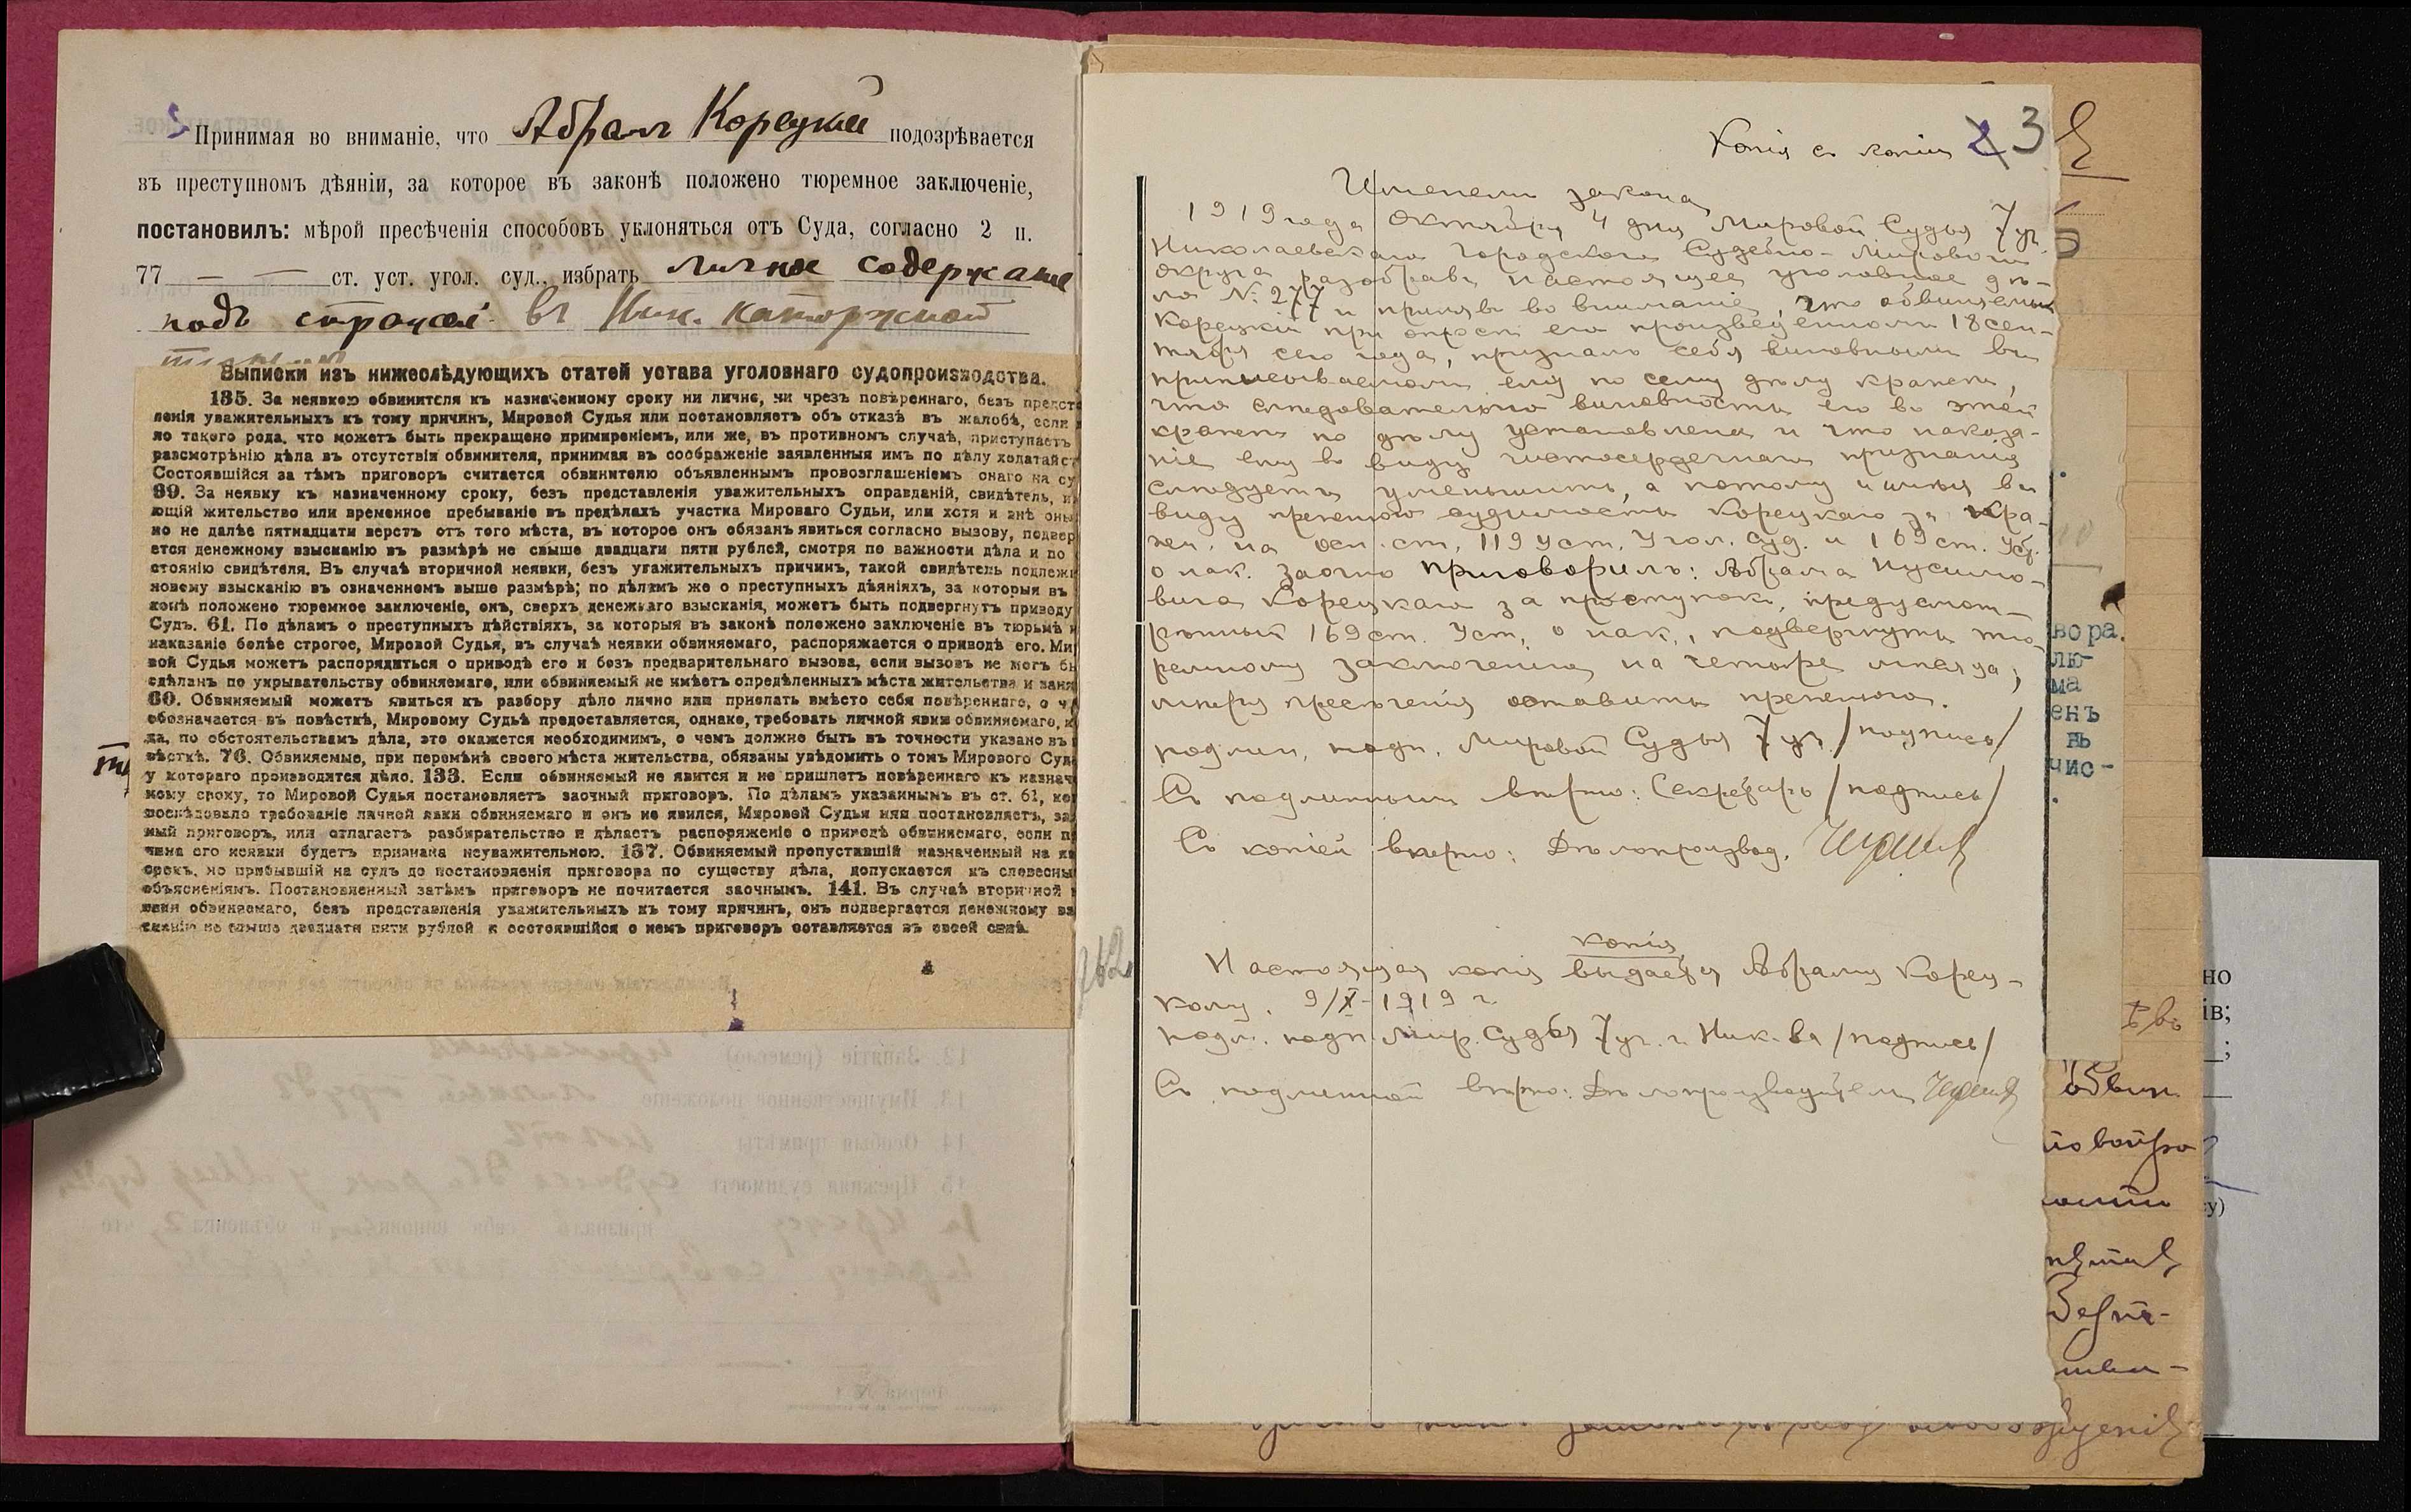 Принимая во вниманіе, что Абрам Корецкий подозрѣвается
въ преступномъ дѣяніи, за которое въ законѣ положено тюремное заключеніе,
постановилъ: мѣрой пресѣченія способовъ уклоняться отъ Суда, согласно 2 п.
77 — — ст. уст. угол. суд., избрать личное содержаніе
подъ стражей въ Ник. каторжной
Выписки изъ нижеслѣдующихъ статей устава уголовнаго судопроизводства.
135. За неявкою обвинителя къ назначенному сроку ни лично, ни чрезъ повѣреннаго, безъ предст
ленія уважительныхъ къ тому причинъ, Мировой Судья или постановляетъ объ отказѣ въ жалобѣ, если
ло такого рода, что можетъ быть прекращено примиреніемъ, или же, въ противномъ случаѣ, приступаетъ
разсмотрѣнію дѣла въ отсутствіи обвинителя, принимая въ соображеніе заявленныя имъ по дѣлу ходатайст
Состоявшійся за тѣмъ приговоръ считается обвинителю объявленнымъ провозглашеніемъ онаго на су
99. За неявку къ назначенному сроку, безъ представленія уважительныхъ оправданій, свидѣтель, и
ющій жительство или временное пребываніе въ предѣлахъ участка Мироваго Судьи, или хотя и внѣ оны
но не далѣе пятнадцати верстъ отъ того мѣста, въ которое онъ обязанъ явиться согласно вызову, подвер
ется денежному взысканію въ размѣрѣ не свыше двадцати пяти рублей, смотря по важности дѣла и по
стоянію свидѣтеля. Въ случаѣ вторичной неявки, безъ уважительныхъ причинъ, такой свидѣтель подлежи
новому взысканію въ означенномъ выше размѣрѣ; по дѣламъ же о преступныхъ дѣяніяхъ, за которыя въ
конѣ положено тюремное заключеніе, онъ, сверхъ денежнаго взысканія, можетъ быть подвергнутъ приводу
Судъ. 61. По дѣламъ о преступныхъ дѣйствіяхъ, за которыя въ законѣ положено заключеніе въ тюрьмѣ и
наказаніе болѣе строгое, Мировой Судья, въ случаѣ неявки обвиняемаго, распоряжается о приводѣ его. Ми
вой Судья можетъ распорядиться о приводѣ его и безъ предварительнаго вызова, если вызовъ не могъ бы
сдѣланъ по укрывательству обвиняемаго, или обвиняемый не имѣетъ опредѣленныхъ мѣста жительства и заня
60. Обвиняемый можетъ явиться къ разбору дѣло лично или прислать вмѣсто себя повѣреннаго, о ч
обозначается въ повѣсткѣ, Мировому Судьѣ предоставляется, однако, требовать личной явки обвиняемаго, к
да, по обстоятельствамъ дѣла, это окажется необходимимъ, о чемъ должно быть въ точности указано въ
вѣсткѣ. 76. Обвиняемые, при перемѣнѣ своего мѣста жительства, обязаны увѣдомить о томъ Мирового Суд
у котораго производится дѣло. 133. Если обвиняемый не явится и не пришлетъ повѣреннаго къ назнач
ному сроку, то Мировой Судья постановляетъ заочный приговоръ. По дѣламъ указаннымъ въ ст. 61, ко
послѣдовало требованіе личной явки обвиняемаго и онъ не явился, Мировой Судья или постановляетъ, за
ный приговоръ, или отлагаетъ разбирательство и дѣлаетъ распоряженіе о приводѣ обвиняемаго, если п
чина его неявки будетъ признана неуважительною. 137. Обвиняемый пропустившій назначенный на яв
срокъ, но прибывшій на судъ до постановленія приговора по существу дѣла, допускается къ словесны
объясненіямъ. Постановленный затѣмъ приговоръ не почитается заочнымъ. 141. Въ случаѣ вторичной
явки обвиняемаго, безъ представленія уважительныхъ къ тому причинъ, онъ подвергается денежному вз
сканію не свыше двадцати пяти рублей и состоявшійся о немъ приговоръ оставляется въ своей силѣ.
Копія съ копіи 3
Именемъ закона
1919 года Октября 4 дня Мировой Судья 7 уч.
Николаевскаго Городского Судебно-Мирового
округа разобравъ настоящее уголовное дѣ-
ло № 277 и принявъ во вниманіе, что обвиняемый
Корецкій при опросѣ его произведенномъ 18 сен-
тября сего года, призналъ себя виновнымъ въ
приписываемой ему по сему дѣлу кражѣ,
что слѣдовательно виновность его въ этой
кражѣ по дѣлу установлена и что наказа-
ніе ему въ виду чистосердечнаго признанія
слѣдуетъ уменьшить, а потому и имѣя въ
виду прежнюю судимость Корецкаго за кра-
жи, на осн. ст. 119 Уст. Угол. Суд. и 169 ст. Уст.
о нак. заочно приговорилъ: Абрама Нусимо-
вича Корецкаго за проступокъ, предусмот-
рѣнный 169 ст. Уст. о нак., подвергнуть тю-
ремному заключенію на четыре мѣсяца;
мѣру пресѣченія оставить прежнюю.
подлин. подп. Мировой Судья 7 уч. /подпись/
Съ подлиннымъ вѣрно: Секретарь /подпись/
Съ копіей вѣрно: Дѣлопроизвод.
копія
Настоящая копія выдается Абраму Корец-
кому. 9/X-1919 г.
подл. подп. Мир. Судья 7 уч. г. Ник-ва /подпись/
Съ подлинной вѣрно: Дѣлопроизводитель
вора.
лю-
ма
енъ
нь
чис-
но
ів;
обвин